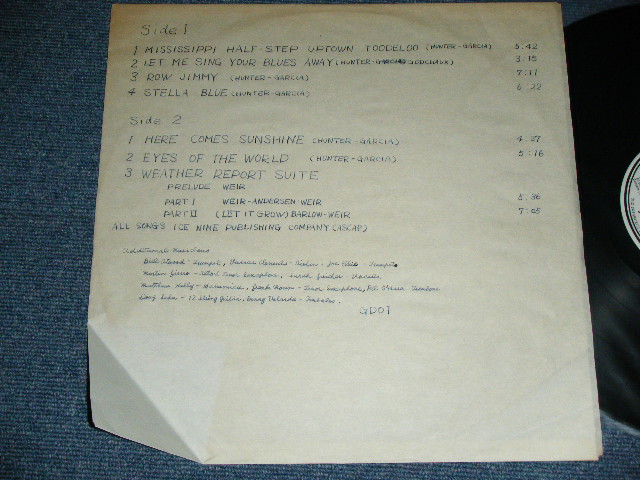 Side 1
1 MISSISSIPPI HALF-STEP UPTOWN TOODELOO (HUNTER-GARCIA) 5:42
2 LET ME SING YOUR BLUES AWAY (HUNTER- GODCHAUX) 3:15
3 ROW JIMMY (HUNTER-GARCIA) 7:11
4 STELLA BLUE (HUNTER-GARCIA) 6:22
Side 2
1 HERE COMES SUNSHINE (HUNTER-GARCIA) 4:37
2 EYES OF THE WORLD (HUNTER-GARCIA) 5:16
3 WEATHER REPORT SUITE
PRELUDE WEIR
PART I WEIR-ANDERSEN-WEIR 5:36
PART II (LET IT GROW) BARLOW-WEIR 7:05
ALL SONGS ICE NINE PUBLISHING COMPANY (ASCAP)
Additional Musicians
Bill Atwood - Trumpet, Vassar Clements - Violin - Joe Ellis - Trumpet
Martin Fierro - Saxophone, Sarah Fulcher - Vocals
Matthew Kelly - Harmonica, Frank Morin - Tenor Saxophone, Pat O'Hara, Trombone
Benny Velarde - Timbales.
GD01